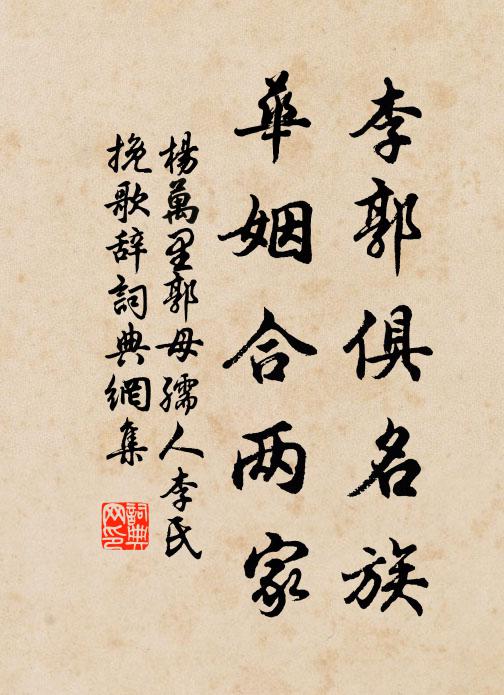 李郭俱名族
華姻合两家
楊萬里郭母孺人李氏
挽歌辞詞典網集
詞典
网印